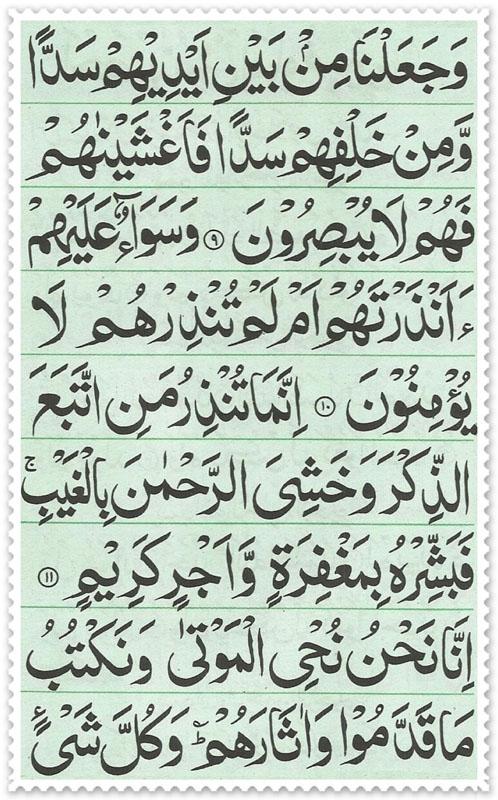 وَجَعَلْنَا مِنْۢ بَيْنِ اَيْدِيْهِمْ سَدًّا
وَّمِنْ خَلْفِهِمْ سَدًّا فَاَغْشَيْنٰهُمْ
فَهُمْ لَا يُبْصِرُوْنَ ۹ وَسَوَآءٌ عَلَيْهِمْ
ءَاَنْذَرْتَهُمْ اَمْ لَمْ تُنْذِرْهُمْ لَا
يُؤْمِنُوْنَ ۱۰ اِنَّمَا تُنْذِرُ مَنِ اتَّبَعَ
الذِّكْرَ وَخَشِىَ الرَّحْمٰنَ بِالْغَيْبِ ۚ
فَبَشِّرْهُ بِمَغْفِرَةٍ وَّاَجْرٍ كَرِيْمٍ ۱۱
اِنَّا نَحْنُ نُحْىِ الْمَوْتٰى وَنَكْتُبُ
مَا قَدَّمُوْا وَاٰثَارَهُمْ ؕ وَكُلَّ شَىْءٍ